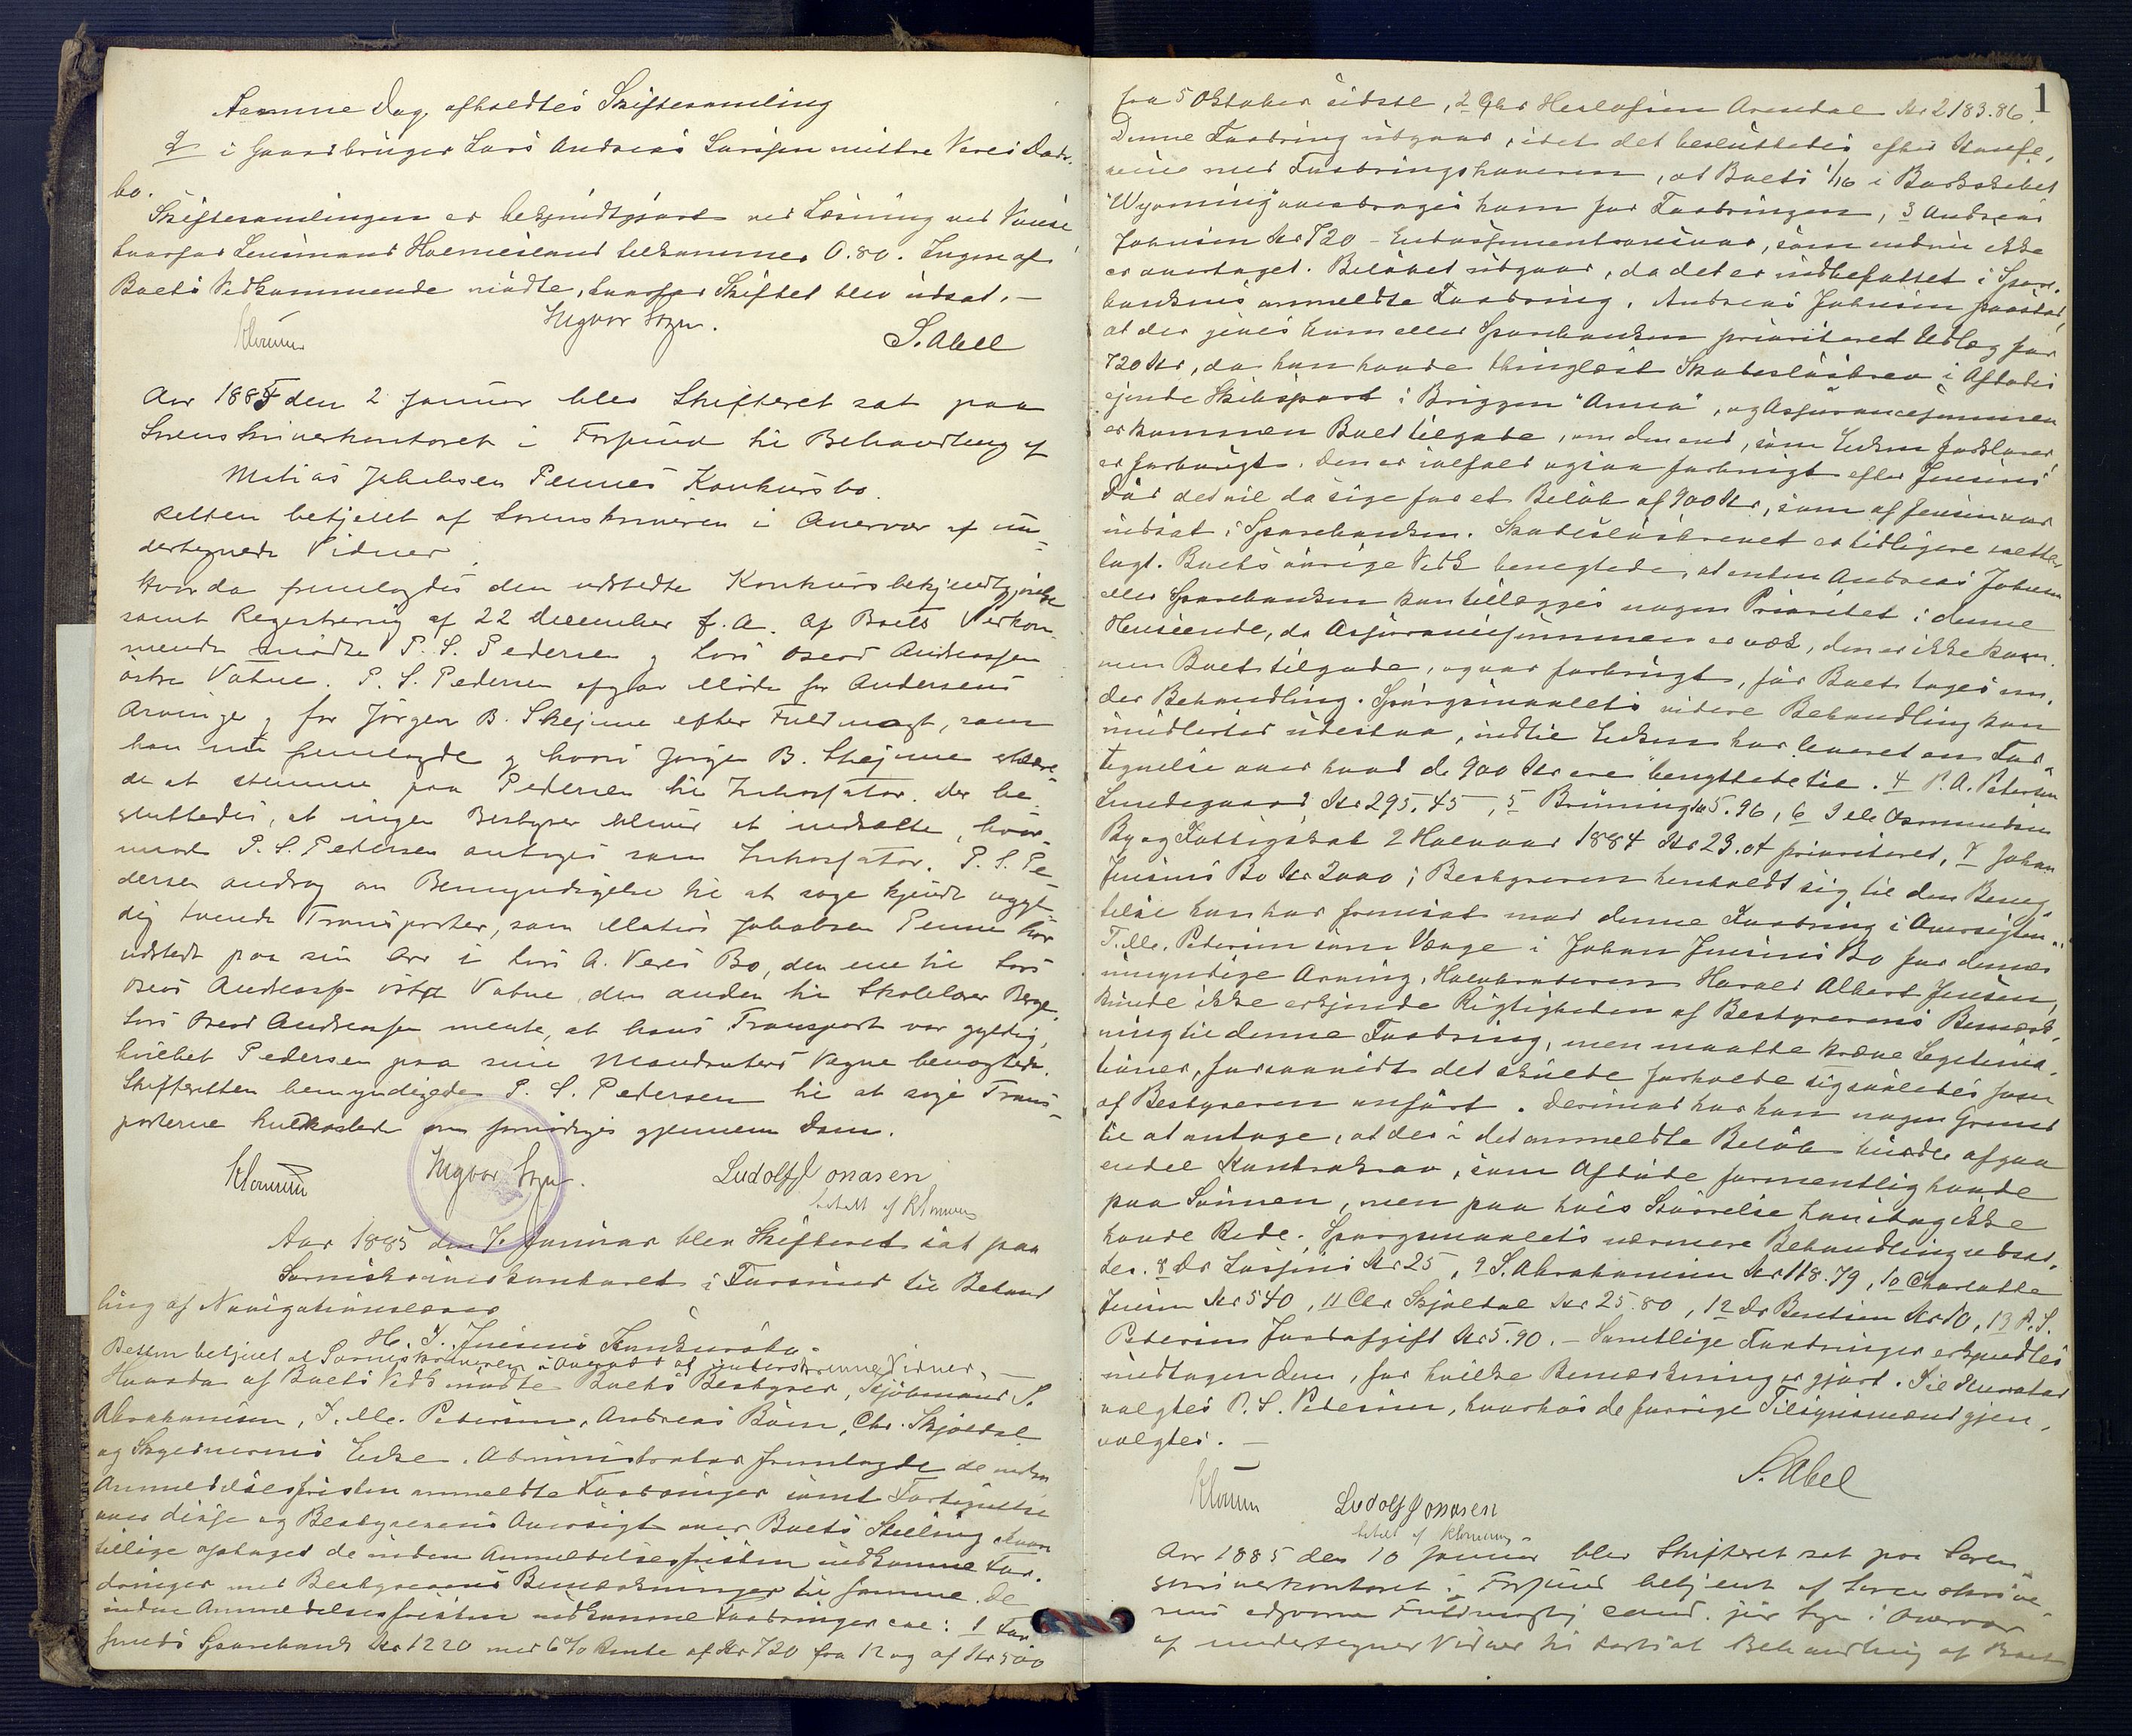 Samme Dag afholdtes Skiftesamling
2 i Gaardbruger Lars Andreas Larsen mittre Veres Døds-
bo.
Skiftesamlingen er bekjendtgjort ved Læsning ved Vanse
hvorfor Lensmand tilkommer 0.80. Ingen af
Boets Vedkommende mødte, hvorfor Skiftet blev udsat. —
S. Abel
Aar 1885 den 2 Januar blev Skifteret sat paa
Sorenskriverkontoret i Farsund til Behandling af
Matias Jakobsen Pennes Konkursbo.
Retten betjent af Sorenskriveren i Overvær af un-
dertegnede Vidner
Hvorda fremlagdes den udstedte Konkursbekjendtgjørelse
samt Registrering af 22 December f. A. Af Boets Vedkom-
mende mødte P. S. Pedersen og Lars Andreassen
østre Vatne. P. S. Pedersen afgav Møde for Andersens
Arvinge og for Jørgen B. Skejnne efter Fuldmagt, som
han nu fremlagde og hvori Jørgen B. Skejnne
de at stemme paa Pedersen til Inkassator. Der be-
sluttedes, at ingen Bestyrer bliver at indsætte, hvor-
imod P. S. Pedersen antages som Inkassator. P. S. Pe-
dersen androg om Bemyndigelse til at søge kjendt ugyl-
dig tvende Transporter, som Matias Jakobsen Penne har
udstedt paa sin Arv i Lars A. Veres Bo, den ene til Lars
Andreassen østre Vatne, den anden til Skolelærer Berge.
Lars Andreassen mente, at hans Transport var gyldig,
hvilket Pedersen paa sine Mandanters Vegne benegtede.
Skifteretten bemyndigede P. S. Pedersen til at søge Trans-
porterne kuldkastede om fornødiges gjennem Dom.
Ludolf Jonasen
betalt af
Aar 1885 den 7. Januar blev Skifteret sat paa
Sorenskriverkontoret i Farsund til Behand
ling af Navigationslærer
H. J. Jensens Konkursbo.
Retten betjent af Sorenskriveren i Overvær af underskrevne Vidner.
Hvorda af Boets Vedk mødte Boets Bestyrer, Kjøbmand S.
Abrahamsen, T. M. Petersen, Andreas Børn, Chr. Skjoldal
og Skyldnerens Enke. Administrator fremlagde de inden
Anmeldelsesfristen anmeldte Fordringer samt Fortegnelse
over disse og Bestyrerens Oversigt over Boets Stilling hvori
tillige optaget de inden Anmeldelsesfristen indkomne For-
dringer med Bestyrerens Bemærkninger til samme. De
inden Anmeldelsesfristen indkomne Fordringer ere: 1 Far-
sunds Sparebank Kr 1220 med 6% Rente af Kr 720 fra 12 og af Kr 500
1
fra 5 Oktober sidste, 2 Arendal Kr 2183.86.
Denne Fordring udgaar, idet det besluttedes efter Konfe-
rence med Fordringshaveren, at Boets 1/16 i Barkskibet
"Wyoming" overdrages ham for Fordringen, 3 Andreas
Johnsen Kr 720 – Endossementsansvar, som endnu ikke
er overtaget. Beløbet udgaar, da det er indbefattet i Spare-
bankens anmeldte Fordring. Andreas Johnsen paastod,
at der gives ham eller Sparebanken prioriteret Udlæg for
720 Kr, da han havde thinglæst Skadesløsbrev i Afdødes
ejende Skibspart i Briggen "Anna", og Assurancesummen
er kommen Boet tilgode, om den end, som Enken forklarer,
er forbrugt. Den er ialfald ogsaa forbrugt efter Jensens
Død det vil da sige for et Beløb af 900 Kr, som af Jensen var
indsat i Sparebanken. Skadesløsbrevet er tidligere
lagt. Boets øvrige Vedk benegtede, at enten Andreas Johnsen
eller Sparebanken kan tillægges nogen Prioritet i denne
Henseende, da Assurancesummen er væk, den er ikke kom-
men Boet tilgode, og var forbrugt, før Boet toges un-
der Behandling. Spørgsmaalets videre Behandling kan
imidlertid udestaa, indtil Enken har leveret en For-
tegnelse over hvad de 900 Kr ere benyttede til. 4 P. A. Petersen
Lundegaard Kr 295.45, 5 Brüning 5.96, 6 Osmundsen
By og Fattigskat 2 Halvaar 1884 Kr 23.04 prioriteret, 7 Johan
Jensens Bo Kr 2000; Bestyreren henholdt sig til den Beneg-
telse han har fremsat mod denne Fordring i Oversigten.
T. M. Petersen som Værge i Johan Jensens Bo for dennes
umyndige Arving, Harald Albert Jensen,
kunde ikke erkjende Rigtigheden af Bestyrerens Bemærk-
ning til denne Fordring, men maatte kræve Legitima-
tioner, forsaavidt det skulde forholde sig saaledes som
af Bestyreren anført. Derimod har han nogen Grund
til at antage, at der i det anmeldte Beløb burde afgaa
endel Kontrakrav, som Afdøde formentlig havde
paa Sønnen, men paa hvis Størrelse han idag ikke
havde Rede. Spørgsmaalets nærmere Behandling udsat-
tes. 8 Dr Kr 25, 9 S. Abrahamsen Kr 118.79, 10 Charlotte
Jensen Kr 540, 11 Chr Skjoldal Kr 25.80, 12 Dr Bentsen Kr 10, 13 P. S.
Petersen Jordafgift Kr 5.90. – Samtlige Fordringer erkjendtes
undtagen dem, for hvilke Bemærkning er gjort. Til Kurator
valgtes P. S. Petersen, hvorhos de forrige Tilsynsmænd gjen-
valgtes. —
S. Abel
Ludolf Jonasen
betalt af
Aar 1885 den 10 Januar blev Skifteret sat paa Soren-
skriverkontoret i Farsund betjent af Sorenskrive-
rens edsvorne Fuldmægtig cand. jur i Overvær
af undertegnede Vidner til fortsat Behandling af Boet